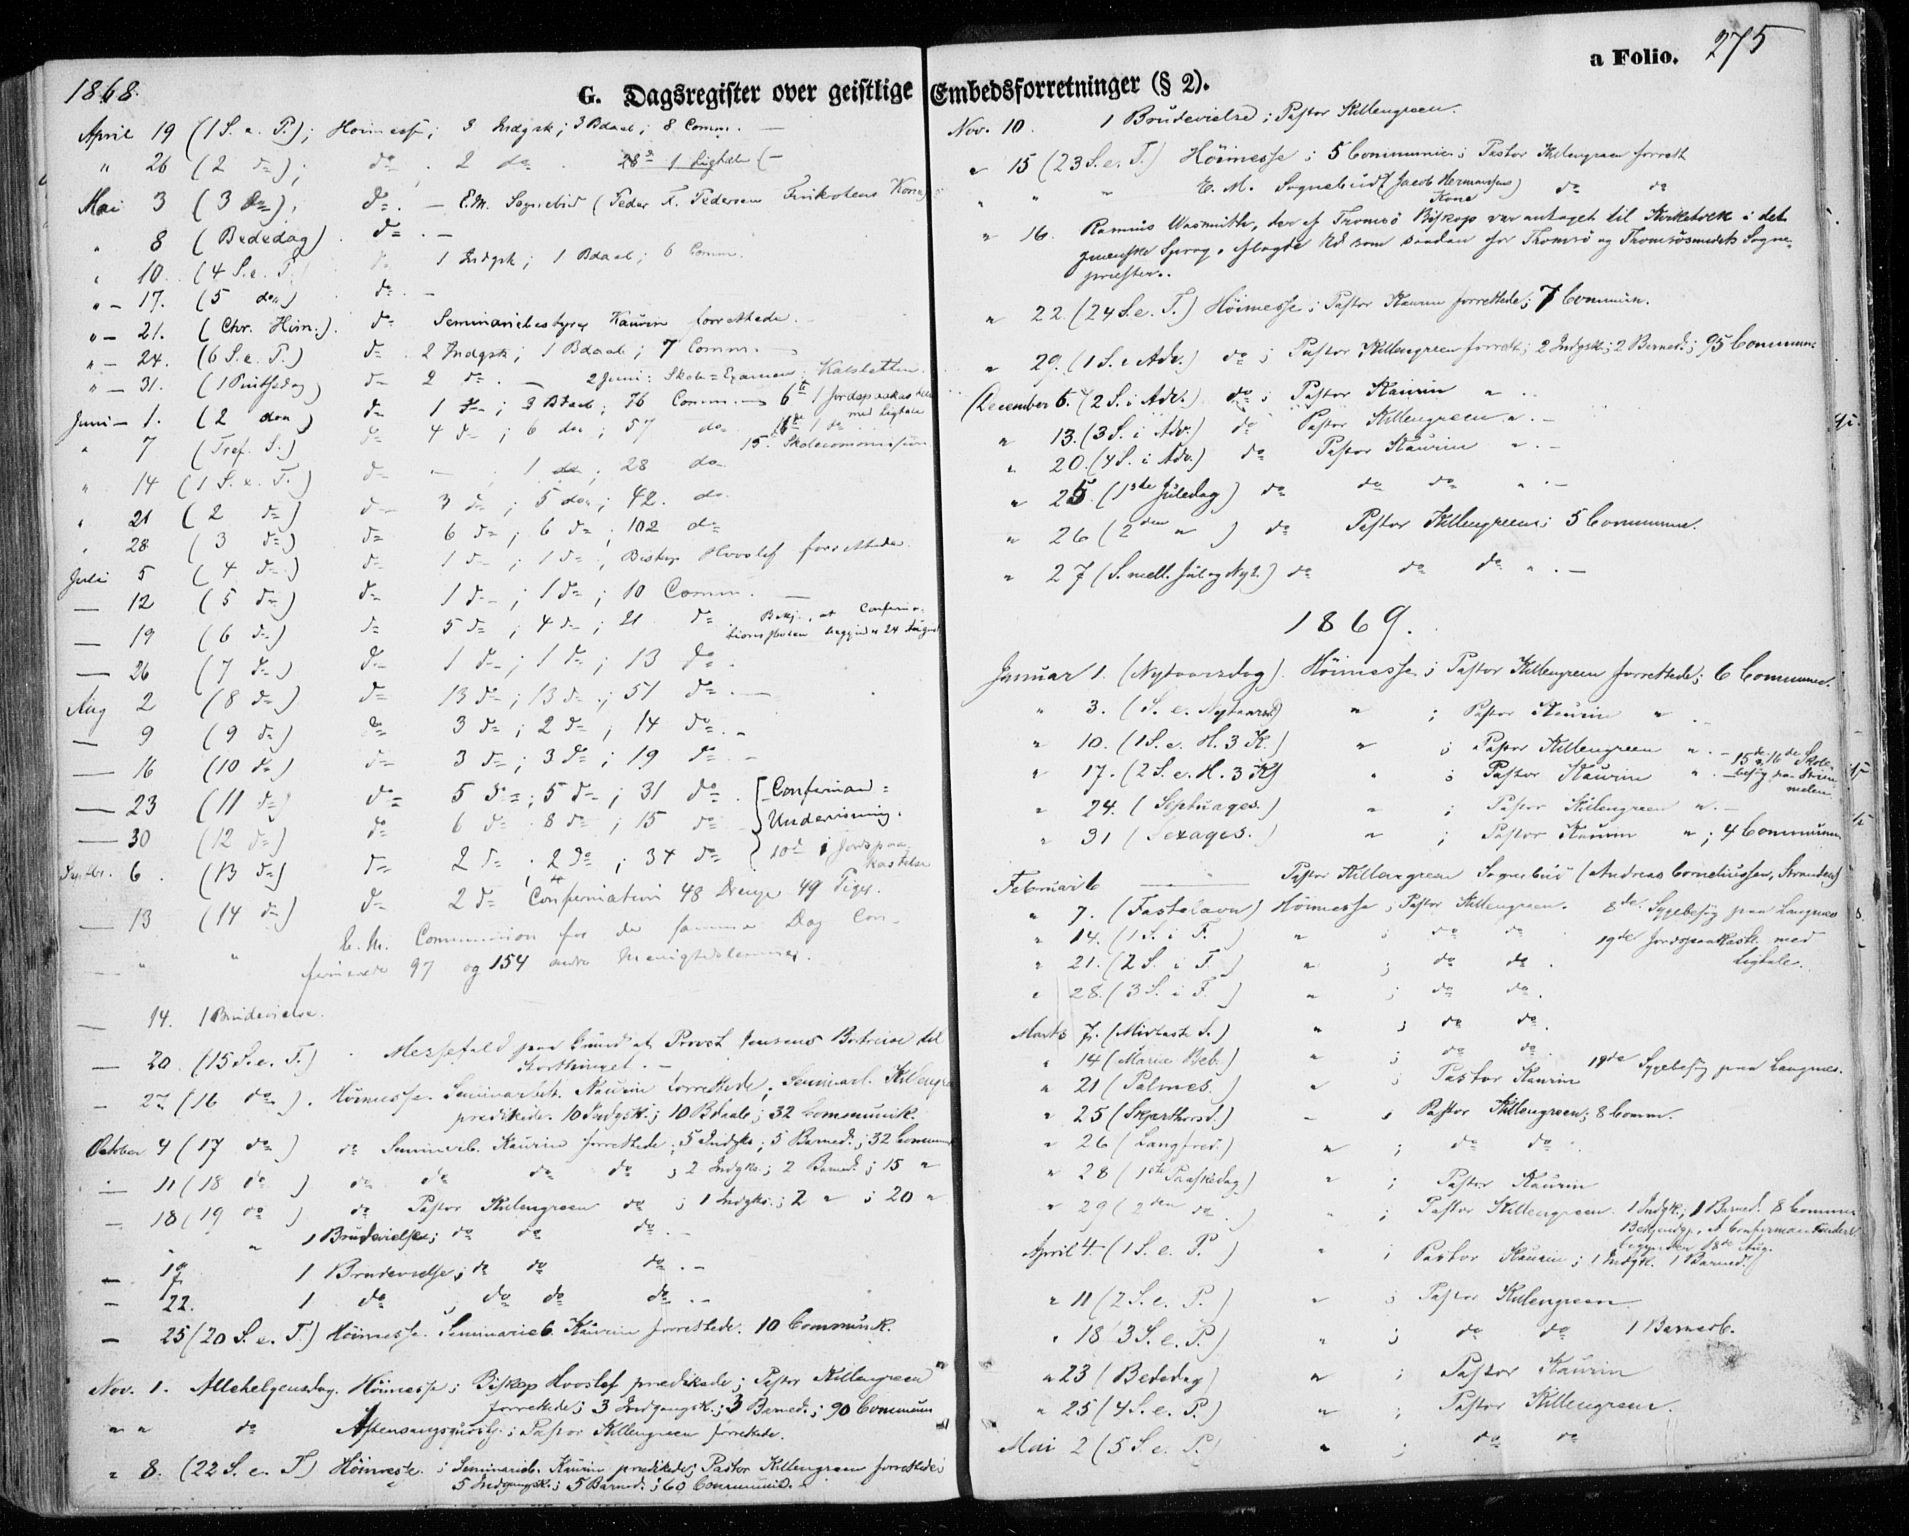 1868.
G. Dagsregister over geistlige
April 19 (1 S. e. P.); Høimesse; 3 Indgsk; 3 Bdaab; 8 Comm. —
" 26 (2 do); do . 2 do . 28de 1 Ligtale (—
Mai 3 (3 do); do . — E.M. Sognebud (Peder F. Pedersen Kone)
" 8 (Bededag) . do . —
" 10. (4 S. e. P.) do 1 Indgsk; 1 Bdaab; 6 Comm.
" — 17. (5 do) do . —
" — 21. (Chr. Him.) . do Seminariebestyrer Kaurin forrettede.
" — 24. (6 S. e. P.) do . 2 Indgsk; 1 Bdaab; 7 Comm. —
" — 31. (1 Pintsedag) do 2 do . — 2 Juni: Skole-Examen
Juni — 1. (2 do) do 1 do; 3 Bdaab; 76 Comm. — 6te 1 Jordspaakastelse
med Ligtale
" 7 (Tref. S.) do 4 do; 6 do; 57 do 1 do
15. Skolecommission
" 14 (1 S. e. T.) do — 1 do; 28 do
" 21 (2 do) do 3 do; 5 do; 42. do
" 28 (3 do) do 6 do; 6 do; 102 do
Juli 5 (4 do) do 1 do; 1 do; Biskop Hvoslef forrettede.
— 12 (5 do) do 1 do; 1 do; 10 Comm. —
— 19 (6 do) do 5 do; 4 do; 21 do Bekj., at Confirma-
tionsskolen begynder 24 August
— 26 (7 do) do 1 do; 1 do; 13 do .
Aug 2 (8 do) do 13 do; 13 do; 51 do . —
— 9 (9 do) do 3 do; 2 do; 14 do . —
— 16 (10 do) do 3 do; 3 do; 19 do . —
— 23 (11 do) do 5 do; 5 do; 31 do . Confirmand-
— 30 (12 do) do 6 do . 8 do; 15 do Undervisning.
Septbr. 6 . (13 do) do 2 do . 2 do; 34 do 10de 1 Jordspaa-
kastelse
— 13 (14 do) do 2 do Confirmation 48 Drenge 49 Piger.
" " E. M. Communion for de samme Dag Con-
firmerede 97 og 154 andre Menighedslemmer.
— 14. 1 Brudevielse.
— 20. (15 S. e. T.) . Messefald paa Grund af Provst Jensens Bortreise til
Storthinget. —
— 27 (16 do) . Høimesse. Seminarbest. Kaurin forrettede; Seminarl. Killengreen
prædikede. 10 Indgsk.; 10 Bdaab; 32 Communik.
Oktober 4 (17 do) do Seminarb. Kaurin forrettede; 5 Indgk; 5 Barned.; 32 Commun
— 11 (18 do) do do do do; 2 Indgk.; 2 Barned.; 15 "
— 18 (19 do) do Pastor Killengreen do; 1 Indgk.; 2 "; 20 "
" " 1 Brudevielse; do do do . —
— 19 1 Brudevielse; do do do . —
— 22. 1 do; do do do . —
— 25 (20 S. e. T.) Høimesse. Seminarieb. Kaurin forrettede. 10 Communik.
Nov. 1. Allehelgensdag. Høimesse; Biskop Hvoslef prædikede; Pastor Killengreen
forrettede; 3 Indgangsk.; 3 Barned.; 90 Commun
" " do Aftensangsgudstj.; Pastor Killengreen forrettede.
" 8. (22 S. e. T) Høimesse; Seminarieb. Kaurin prædikede; Pastor Killengreen forrettede;
5 Indgangsk.; 5 Barned.; 60 Communic.
a Folio. 275
Embedsforretninger (§ 2).
Nov. 10. 1 Brudevielse; Pastor Killengreen.
" 15 (23 S. e. T.) Høimesse; 5 Communic; Pastor Killengreen forrett
" " E. M. Sognebud (Jacob Hermansens) do do
Kone
" 16. Rasmus Wasmuth, der af Tromsø Biskop var antaget til Kirketolk i det
qvænske Sprog, aflagde Ed som saadan for Tromsø og Tromsøsundets Sogne-
præster.
" 22. (24 S. e. T.) Høimesse; Pastor Kaurin forrettede; 7 Commun.
" 29. (1 S. i Adv.) do; Pastor Killengreen forrett; 2 Indgsk; 2 Barned.; 95 Commun:
December 6. (2 S. i Adv.) do; Pastor Kaurin " . .
" 13. (3 S. i Adv.) do Pastor Killengreen " . —
" 20. (4 S. i Adv.) do Pastor Kaurin " . —
" 25. (1ste Juledag) do do do " . —
" 26 (2den " ) do Pastor Killengreen; 5 Commun.
" 27 (S. mell. Jul og Nyt.) do do do " . —
1869.
Januar 1. (Nytaarsdag). Høimesse; Pastor Killengreen forrettede; 6 Commun.
" 3. (S. e. Nytaarsd) "; Pastor Kaurin " . —
" 10. (1 S. e. H. 3 K.) "; Pastor Killengreen " . —
" 17. (2 S. e. H. 3 K) "; Pastor Kaurin " . — 15de, 16de Skole-
besøg paa
" 24. (Septuages.) "; Pastor Killengreen " . —
" 31 (Sexages.) "; Pastor Kaurin "; 4 Commun
Februar 6 — Pastor Killengreen Sognebud (Andreas Corneliussen, Stranden)
" 7. (Fastelavn) Høimesse; Pastor Killengreen. 8de Sygebesøg paa Langnes
" 14. (1 S. i F.) "; do do 19de Jordspaakast. med
Ligtale.
" 21. (2 S. i F.) "; do do .
" 28. (3 S. i F.) "; do do .
Marts 7. (Midfaste S.) "; do do .
" 14 (Mariæ Beb.) "; do do .
" 21 (Palmes.) "; Pastor Kaurin 19de Sygebesøg paa Langnes.
" 25 (Skjærthorsd.) —; Pastor Killengreen; 8 Comm.
" 26 (Langfred.) "; do do .
" 28 (1ste Paaskedag) "; Pastor Kaurin
" 29 (2den do .) "; Pastor Killengreen. 1 Indgk.; 1 Barned. 8 Commun
Bekjendtgj., at Confirmand.underv.
begynder 18de Aug.
April 4. (1 S. e. P.) "; Pastor Kaurin; 1 Indgk. 1 Barned.
" 11 (2 S. e. P.) "; Pastor Killengreen.
" 18 (3 S. e. P.) "; do do 1 Barned.
" 23 (Bededag) "; Pastor Kaurin
" 25 (4 S. e. P.) "; Pastor Killengreen.
Mai 2 (5 S. e. P.) "; do do